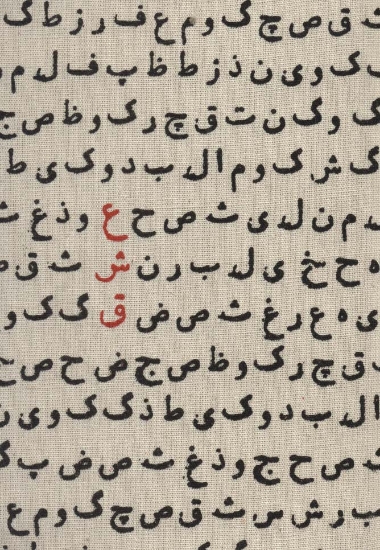 ث ق ص چ گ و م ع ف ر ز ط گ
ک و ی ن ذ ز ط ظ پ ف ل د م
گ و گ ن ت ق چ ر گ و ظ ص چ
گ ش ک و م ا ل ب د و ک ی ط
د م ن ل د ی ث ص ح ع و ذ غ ث
ه ح خ ی ل د ب ر ن ش ث ق ص
ی ه ع ر غ ث ص ض ق گ ک و
ق چ ر ک و ظ ص چ ض ح ص ح
ا ل ب د و ک ی ط ذ گ ک و ی ن
ث ص ح چ و ذ غ ث ص ض پ ک
ب ر ش س ث ق ص چ گ و م ع